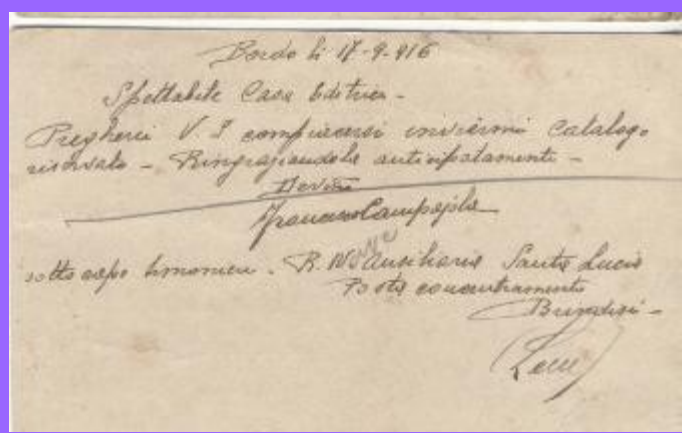 Bordo li 17-9-916
Spettabile Casa Editrice -
Pregherei V. S compiacersi inviarmi Catalogo
riservato - Ringraziandola anticipatamente -
Dev.mo
Francesco Campajola
sotto capo timoniere. R. Nave Ausiliaria Santa Lucia
Posta concentramento
Brindisi -
(Lecce)